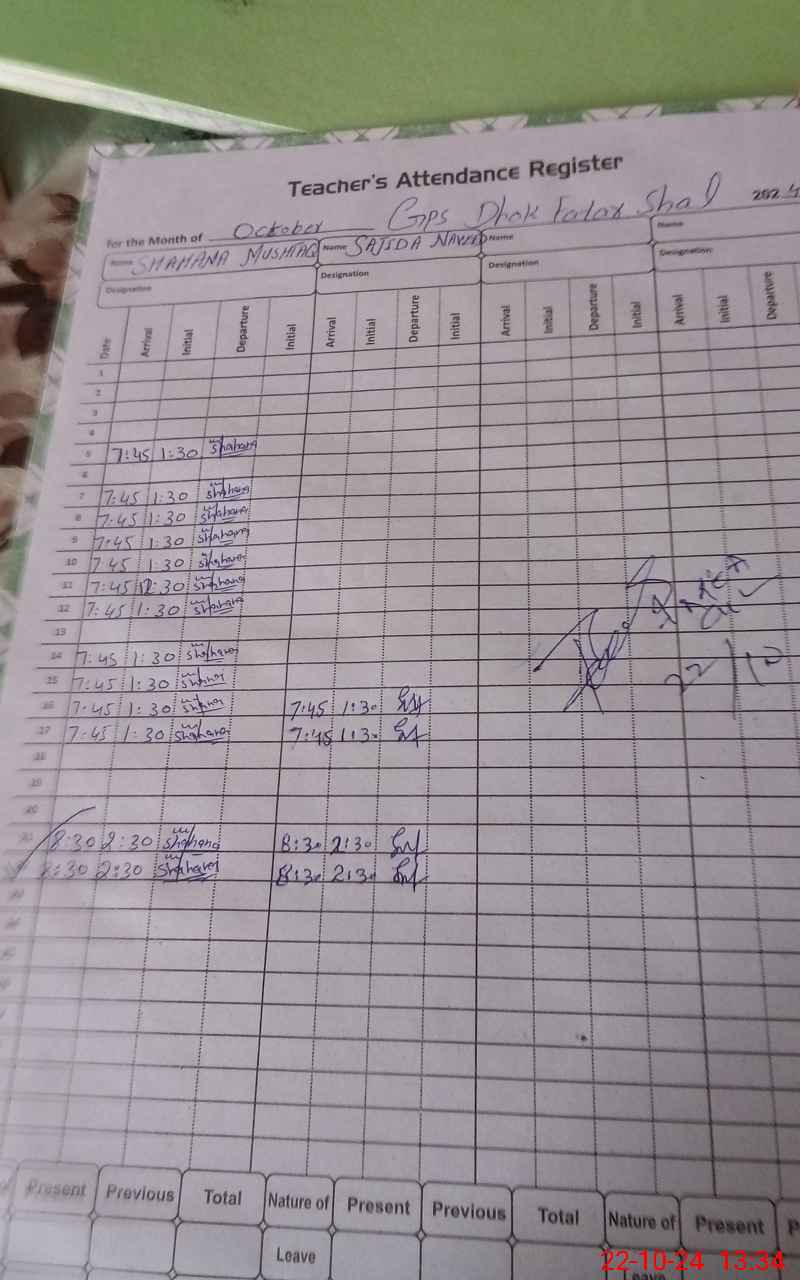 Teacher's Attendance Register
For the Month of October GPS Dhok 2024
Name SHAHANA MUSHTAQ Name SAJIDA NAVEED Name Name
Designation Designation Designation Designation
Date Arrival Initial Departure Initial Arrival Initial Departure Initial Arrival Initial Departure Initial Arrival Initial Departure
1
2
3
4
5 7:45 1:30 Shahana
6
7 7:45 1:30 Shahana
8 7:45 1:30 Shahana
9 7:45 1:30 Shahana
10 7:45 1:30 Shahana
11 7:45 12:30 Shahana
12 7:45 1:30 Shahana
13
14 7:45 1:30 Shahana
15 7:45 1:30 Shahana
16 7:45 1:30 Shahana 7:45 1:30
17 7:45 1:30 Shahana 7:45 1:30
18
19
20
21 8:30 2:30 Shahana 8:30 2:30
8:30 2:30 Shahana 8:30 2:30
22/10
Present Previous Total Nature of Present Previous Total Nature of Present
Leave Leave
22-10-24 13:34